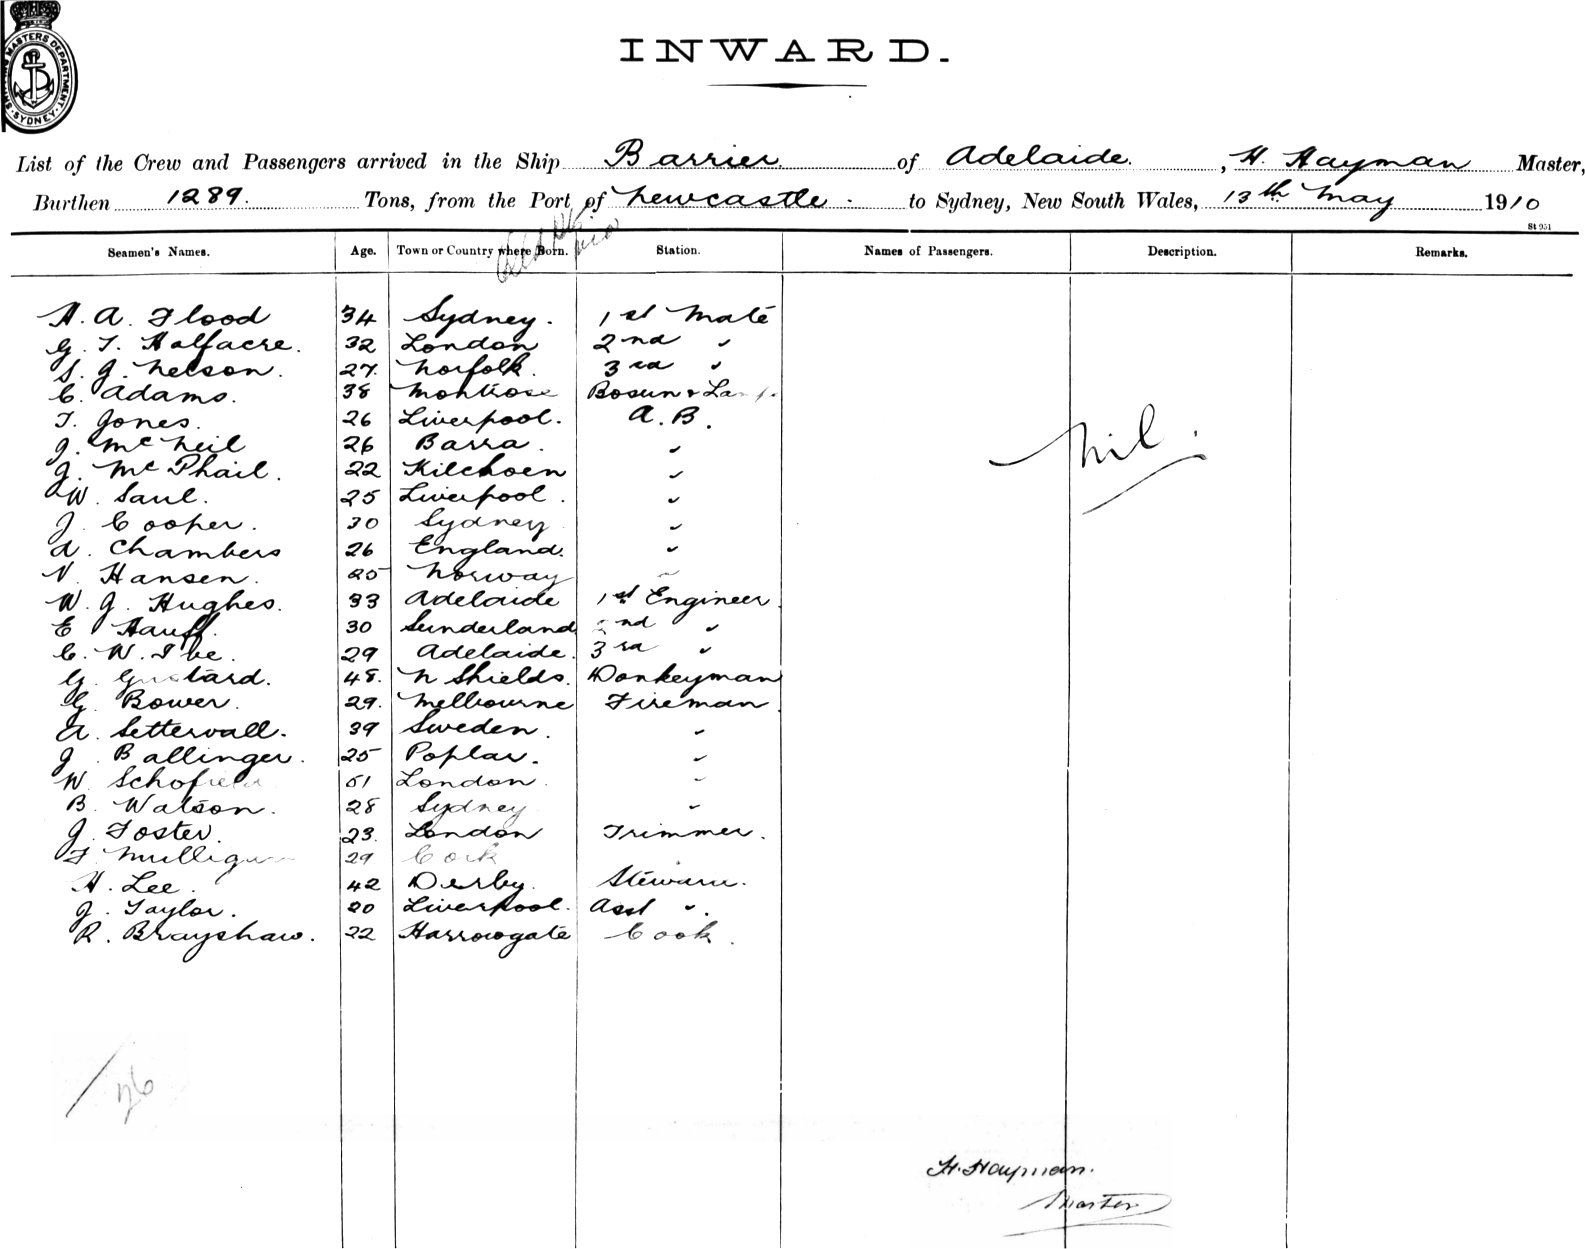 SHIPPING MASTERS DEPARTMENT SYDNEY
INWARD.
List of the Crew and Passengers arrived in the Ship Barrier of Adelaide. , H. Hayman Master,
Burthen 1289. Tons, from the Port of Newcastle. to Sydney, New South Wales, 13th May 1910
St 951
Seamen's Names. Age. Town or Country where Born. Station. Names of Passengers. Description. Remarks.
H. A. Flood 34 Sydney. 1st Mate
G. T. Halfacre. 32 London 2nd "
S. J. Nelson. 27. Norfolk. 3rd "
C. Adams. 38 Montrose Bosun &
T. Jones. 26 Liverpool. A.B.
J. McNeil 26 Barra. "
J. McPhail. 22 Kilchoen "
W. Saul. 25 Liverpool. "
J. Cooper. 30 Sydney "
A. Chambers 26 England. "
N. Hansen. 25 Norway "
W. J. Hughes. 33 Adelaide 1st Engineer
E Hauff. 30 Sunderland 2nd "
C. W. Ibe. 29 Adelaide. 3rd "
G. Gustard. 48. N Shields. Donkeyman
G. Bower. 29. Melbourne Fireman
A. Settervall. 39 Sweden. "
J. Ballinger. 25 Poplar. "
W. Schofield 51 London. "
B. Watson. 28 Sydney "
J. Foster. 23. London Trimmer.
F Mulligan 29 Cork
H. Lee. 42 Derby. Steward.
J. Taylor. 20 Liverpool. Asst ".
R. Brayshaw. 22 Harrowgate Cook.
Nil.
/26
H. Hayman.
Master